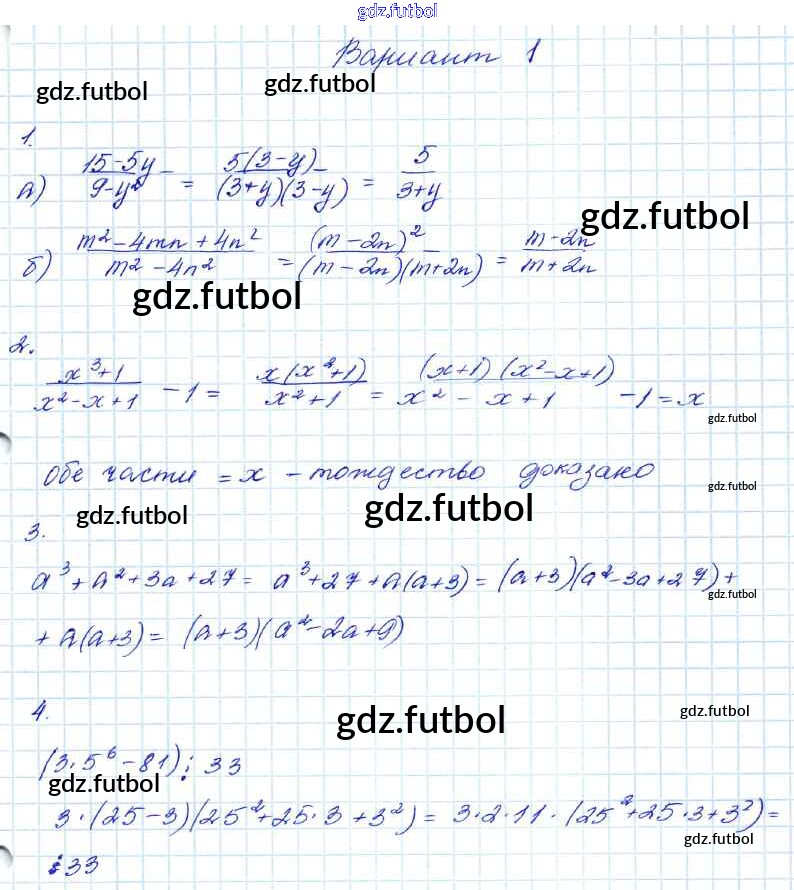 gdz.futbol
Вариант 1
gdz.futbol gdz.futbol
1.
а) (15-5y)/(9-y²) = 5(3-y)/((3+y)(3-y)) = 5/(3+y)
gdz.futbol
б) (m²-4mn+4n²)/(m²-4n²) = (m-2n)²/((m-2n)(m+2n)) = (m-2n)/(m+2n)
gdz.futbol
2.
(x³+1)/(x²-x+1) -1 = x(x²+1)/(x²+1) = (x+1)(x²-x+1)/(x²-x+1) -1 = x
gdz.futbol
Обе части = x - тождество доказано
gdz.futbol
gdz.futbol gdz.futbol
3.
a³+a²+3a+27= a³+27+a(a+3)= (a+3)(a²-3a+27)+
gdz.futbol
+a(a+3)= (a+3)(a²-2a+9)
4.
gdz.futbol gdz.futbol
(3·5⁶-81)⋮33
gdz.futbol
3·(25-3)(25²+25·3+3²)= 3·2·11·(25²+25·3+3²)=
gdz.futbol
⋮33
gdz.futbol